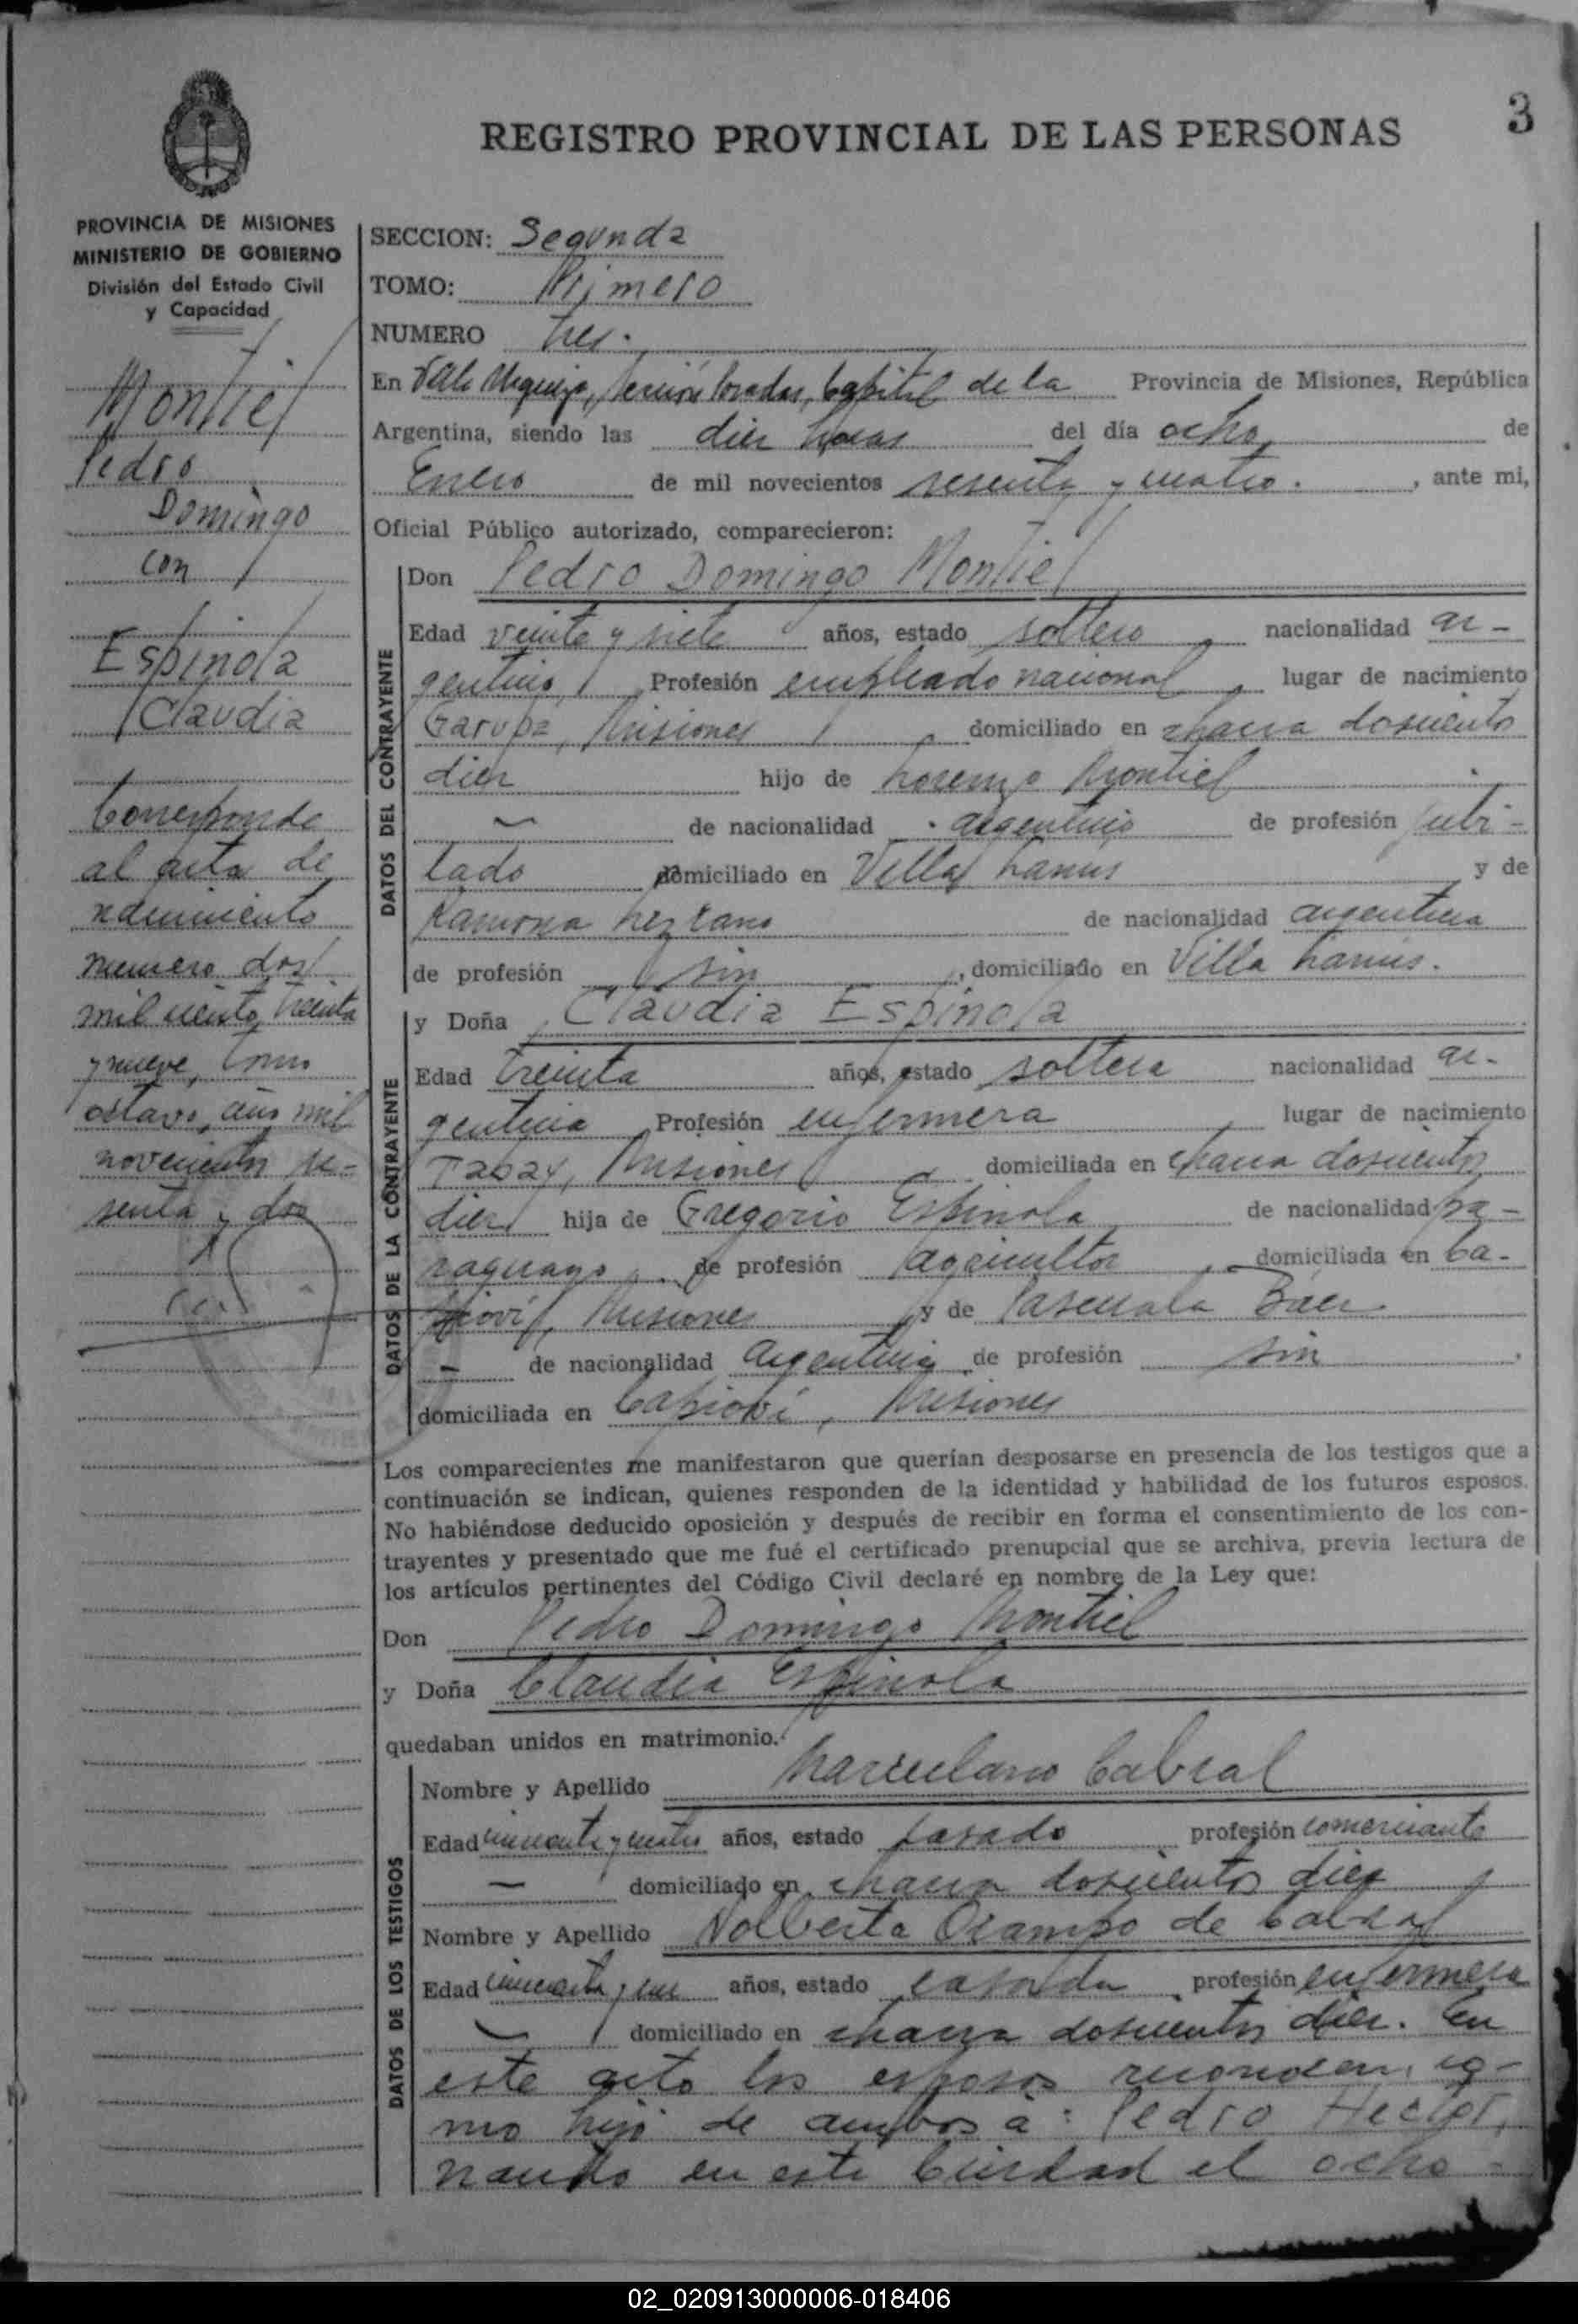 3
REGISTRO PROVINCIAL DE LAS PERSONAS
PROVINCIA DE MISIONES
MINISTERIO DE GOBIERNO
División del Estado Civil
y Capacidad
Montiel
Pedro
Domingo
con
Espinola
Claudia
Corresponde
al acta de
nacimiento
numero dos
mil ciento treinta
y nueve, tomo
octavo, año mil
novecientos se-
senta y dos
SECCION: Segunda
TOMO: Primero
NUMERO tres.
En Capital de la Provincia de Misiones, República
Argentina, siendo las diez horas del día ocho de
Enero de mil novecientos sesenta y cuatro. , ante mi,
Oficial Público autorizado, comparecieron:
DATOS DEL CONTRAYENTE
Don Pedro Domingo Montiel
Edad veinte y siete años, estado soltero nacionalidad ar-
gentino, Profesión empleado nacional, lugar de nacimiento
Garupa, Misiones domiciliado en chacra doscientos
diez hijo de Lorenzo Montiel
— de nacionalidad argentino de profesión jubi-
lado domiciliado en Villa Lanus y de
Ramona Lezcano de nacionalidad argentina
de profesión sin, domiciliado en Villa Lanús.
DATOS DE LA CONTRAYENTE
y Doña Claudia Espinola
Edad treinta años, estado soltera nacionalidad ar-
gentina Profesión enfermera lugar de nacimiento
Tabay, Misiones domiciliada en chacra doscientos
diez hija de Gregorio Espinola de nacionalidad pa-
raguayo, de profesión agricultor, domiciliada en Ca-
pioví, Misiones y de Pascuala Báez
— de nacionalidad argentina de profesión sin
domiciliada en Capioví, Misiones
Los comparecientes me manifestaron que querían desposarse en presencia de los testigos que a
continuación se indican, quienes responden de la identidad y habilidad de los futuros esposos.
No habiéndose deducido oposición y después de recibir en forma el consentimiento de los con-
trayentes y presentado que me fué el certificado prenupcial que se archiva, previa lectura de
los artículos pertinentes del Código Civil declaré en nombre de la Ley que:
Don Pedro Domingo Montiel
y Doña Claudia Espinola
quedaban unidos en matrimonio.
DATOS DE LOS TESTIGOS
Nombre y Apellido Cabral
Edad cincuenta y cuatro años, estado casado profesión comerciante
— domiciliado en chacra doscientos diez
Nombre y Apellido Nolberta Ocampo de Cabral
Edad cincuenta y un años, estado casada profesión enfermera
— domiciliado en chacra doscientos diez. En
este acto los esposos reconocen co-
mo hijo de ambos a: Pedro Hector,
nacido en esta Ciudad el ocho
02_020913000006-018406